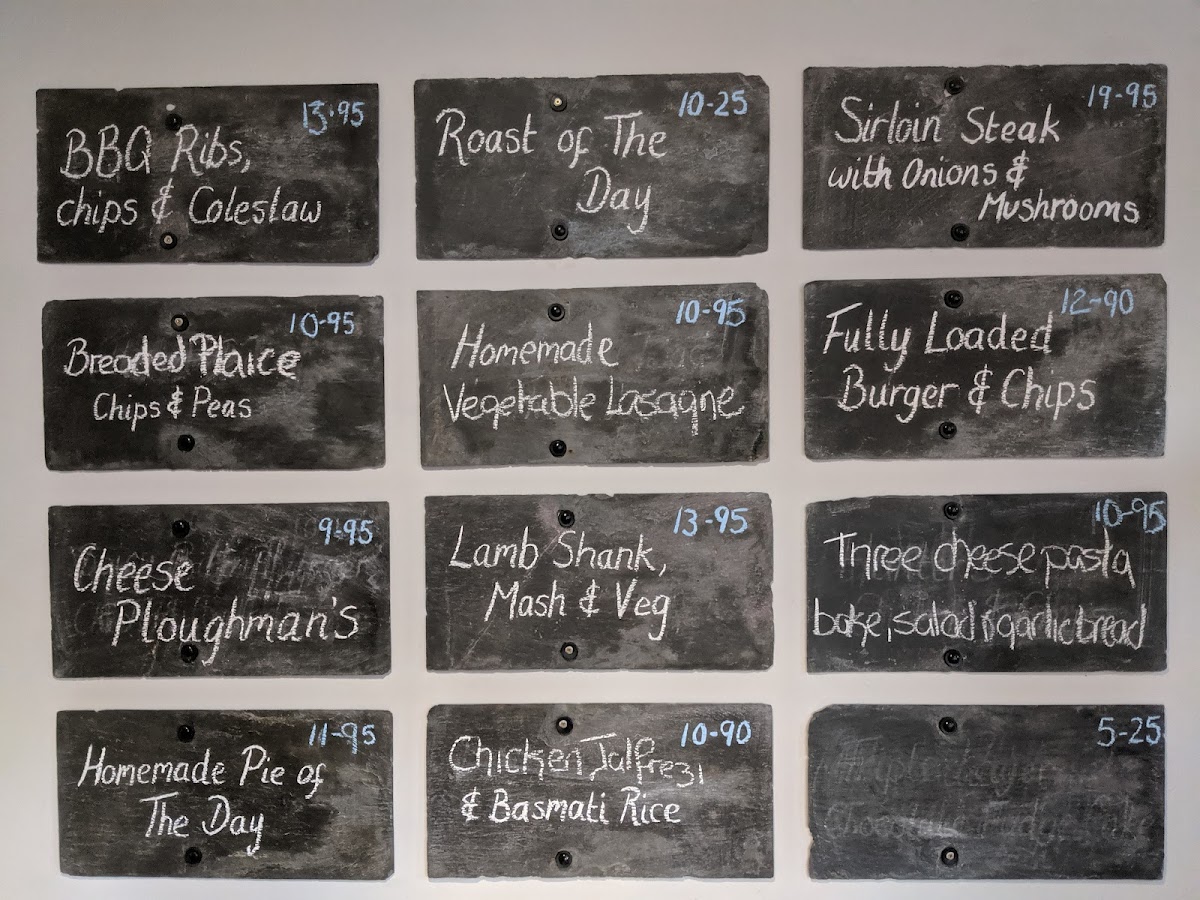 13.95
BBQ Ribs,
chips & Coleslaw
10-25
Roast of The
Day
19-95
Sirloin Steak
with Onions &
Mushrooms
10-95
Breaded Plaice
Chips & Peas
10-95
Homemade
Vegetable Lasagne
12-90
Fully Loaded
Burger & Chips
9-95
Cheese
Ploughman's
13-95
Lamb Shank,
Mash & Veg
10-95
Three cheese pasta
bake, salad & garlic bread
11-95
Homemade Pie of
The Day
10-90
Chicken Jalfrezi
& Basmati Rice
5-25
Chocolate Fudge Cake